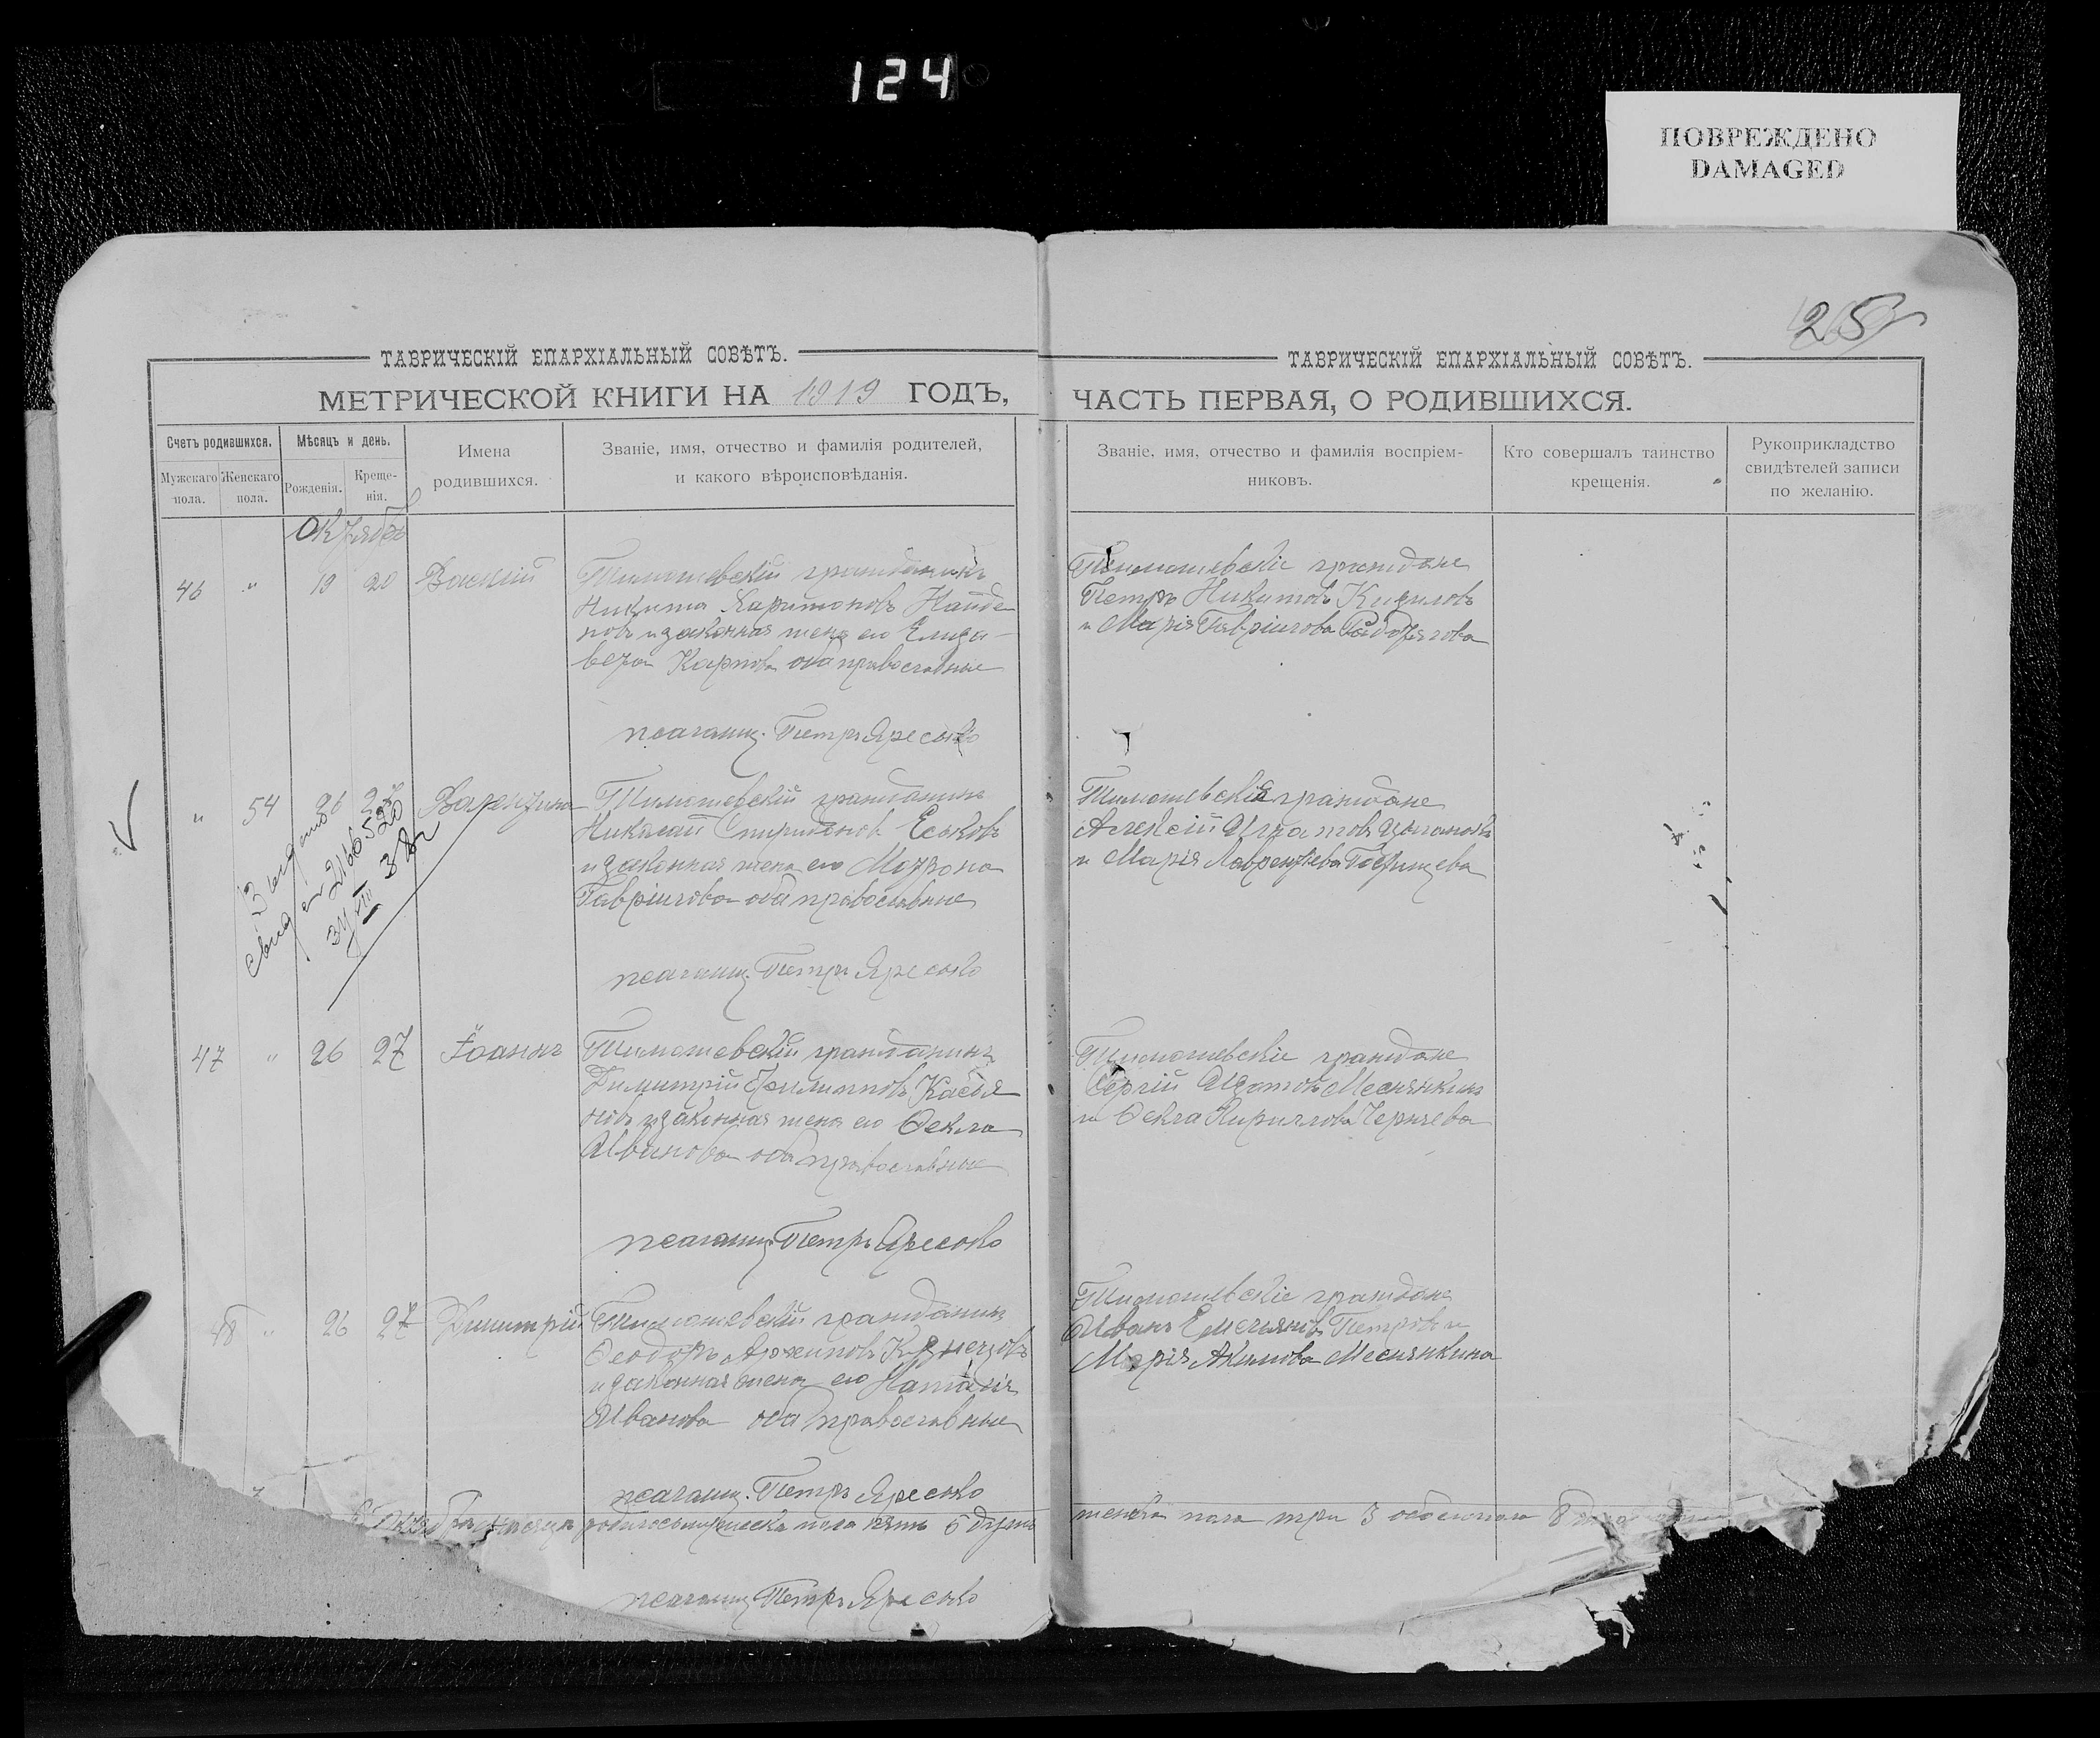 124
ПОВРЕЖДЕНО
DAMAGED
25
ТАВРИЧЕСКІЙ ЕПАРХІАЛЬНЫЙ СОВѢТЪ.
МЕТРИЧЕСКОЙ КНИГИ НА 1919 ГОДЪ,
Счетъ родившихся.
Мужскаго пола.
Женскаго пола.
Мѣсяцъ и день.
Рожденія.
Креще-
нія.
Имена
родившихся.
Званіе, имя, отчество и фамилія родителей,
и какого вѣроисповѣданія.
Октябрь
46 " 19 20 Василій
Тимошевскій гражданинъ
Никита Харитоновъ Найде
новъ и законная жена его Елиза-
вета Карпова оба православные
псаломщ. Петръ Яресько
" 54 26 27 Валентина
Тимошевскій гражданинъ
Николай Спиридоновъ Еськовъ
и законная жена его Матрона
Гавріилова оба православные
псаломщ. Петръ Яресько
47 " 26 27 Іоаннъ
Тимошевскій гражданинъ
Димитрій Филипповъ Касья
новъ и законная жена его Ѳекла
Иванова оба православные
псаломщ. Петръ Яресько
48 " 26 27 Димитрій
Тимошевскій гражданинъ
Ѳеодоръ Архиповъ Кузнецовъ
и законная жена его Наталія
Иванова оба православные
псаломщ. Петръ Яресько
мѣсяца родилось мужеска пола пять 5 душъ
псаломщ. Петръ Яресько
ТАВРИЧЕСКІЙ ЕПАРХІАЛЬНЫЙ СОВѢТЪ.
ЧАСТЬ ПЕРВАЯ, О РОДИВШИХСЯ.
Званіе, имя, отчество и фамилія воспріем-
никовъ.
Кто совершалъ таинство
крещенія.
Рукоприкладство
свидѣтелей записи
по желанію.
Тимошевскіе граждане
Петръ Никитовъ Кизиловъ
и Марія Гавріилова
Тимошевскіе граждане
Алексій Игнатовъ Цыгановъ
и Марія Лаврентіева
Тимошевскіе граждане
Сергій Изотовъ Меснянкинъ
и Ѳекла Кириллова Чернова
Тимошевскіе граждане
Иванъ Емельяновъ Петровъ и
Марія Акимова Меснянкина
женска пола три 3 обоего пола 8